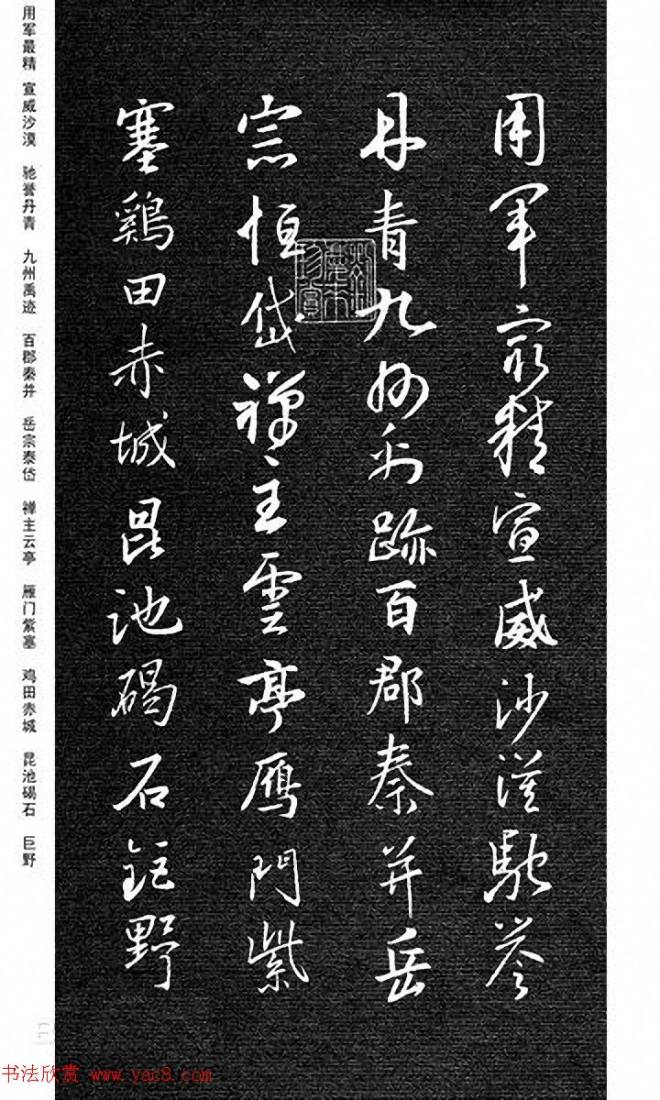 用軍㝡精宣威沙漠馳譽
丹青九州禹跡百郡秦并岳
宗恒岱禪主雲亭鴈門紫
塞鷄田赤城昆池碣石鉅野
用军最精 宣威沙漠 驰誉丹青 九州禹迹 百郡秦并 岳宗泰岱 禅主云亭 雁门紫塞 鸡田赤城 昆池碣石 巨野
书法欣赏 www.yac8.com